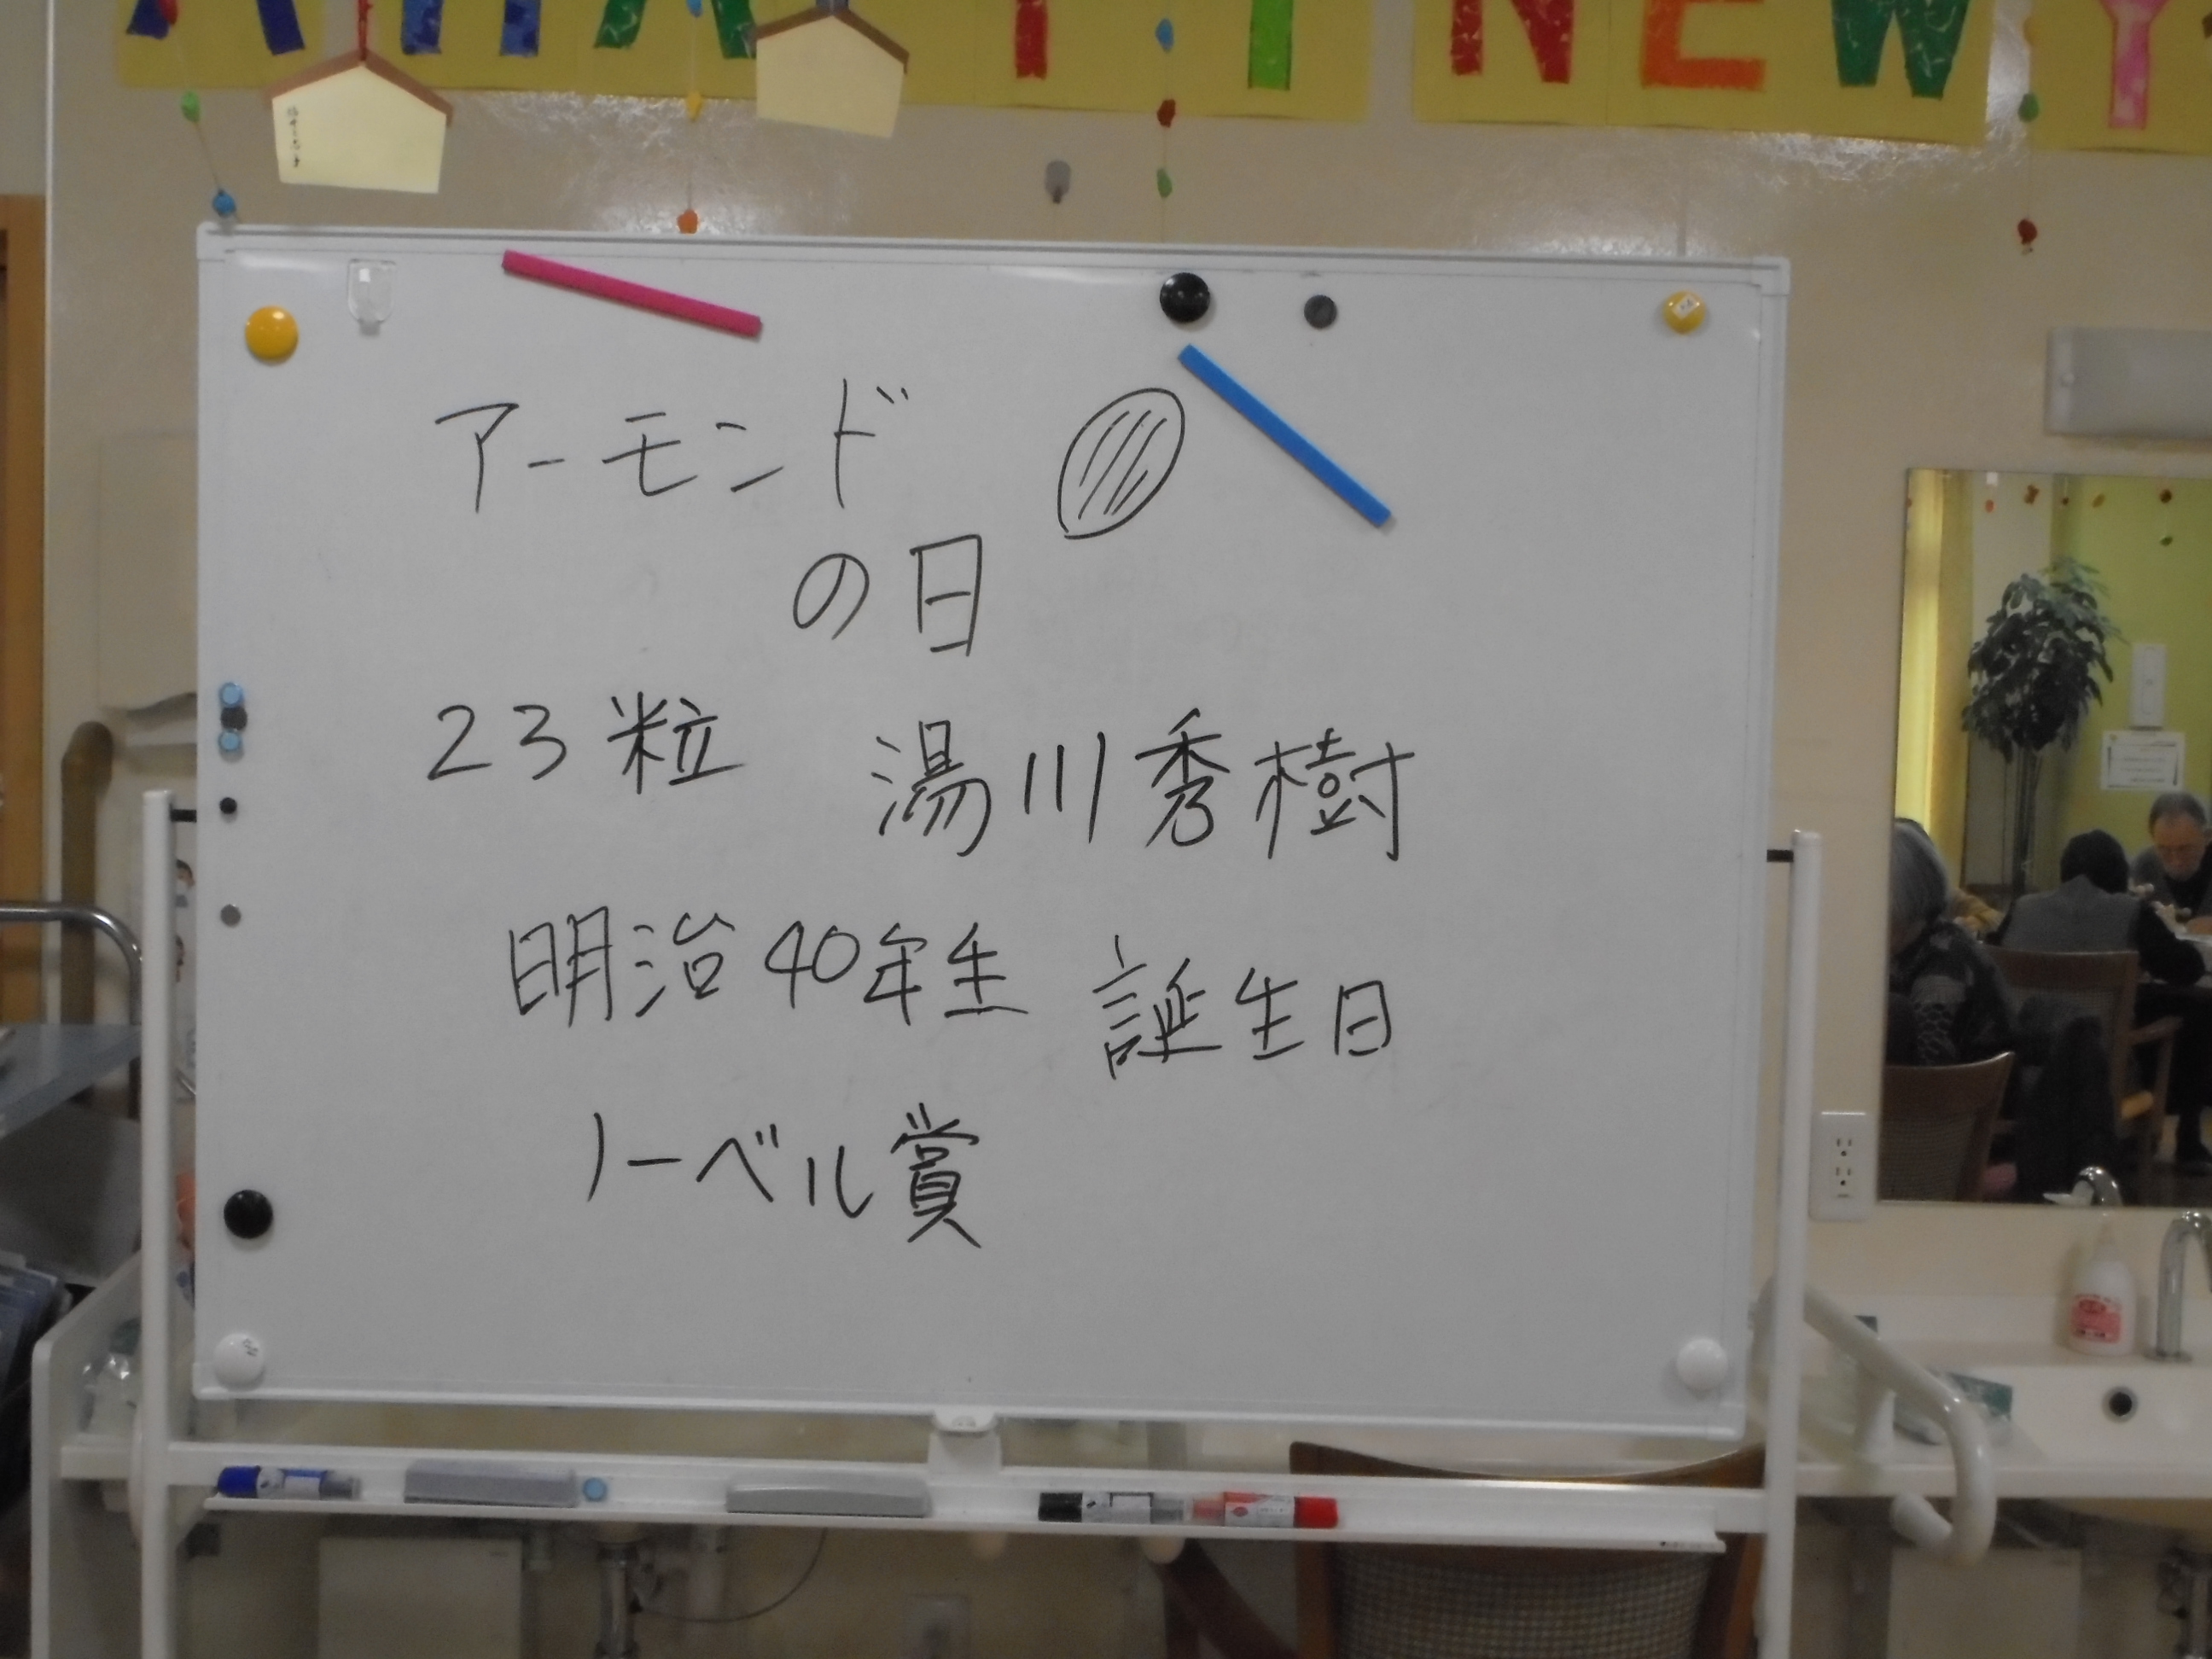 アーモンド
の日
23粒 湯川秀樹
明治40年生 誕生日
ノーベル賞
NEW Y